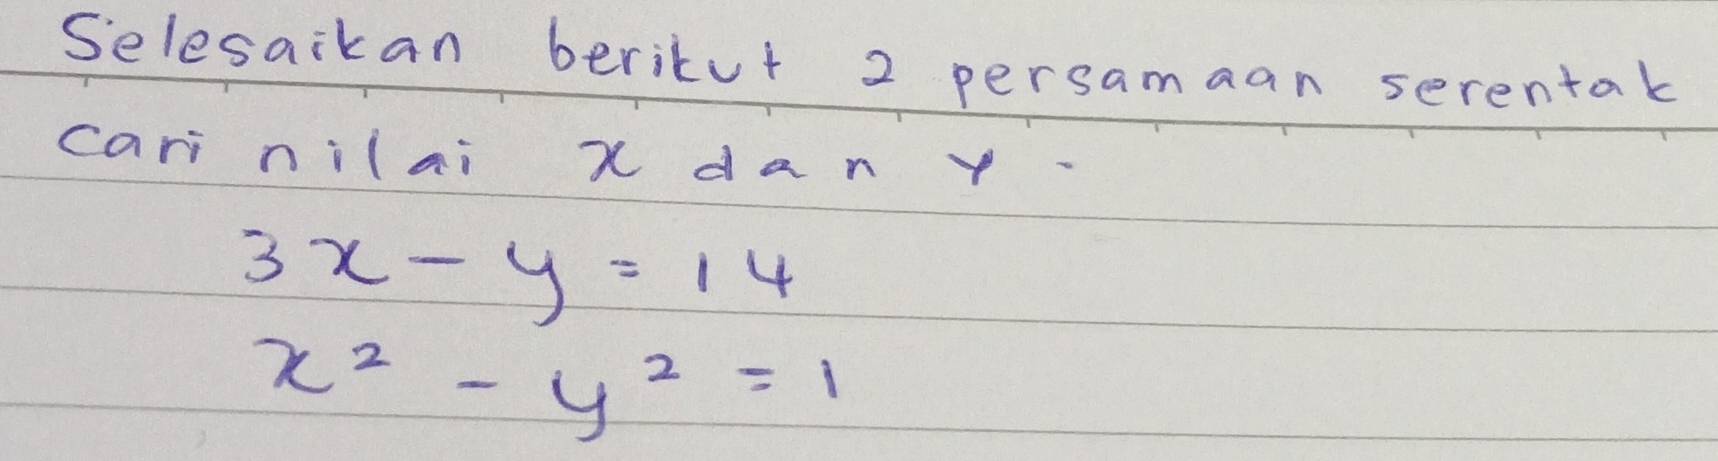 Selesaikan berikut 2 persamaan serentak
cari nilai x dan y.
3x - y = 14
x² - y² = 1